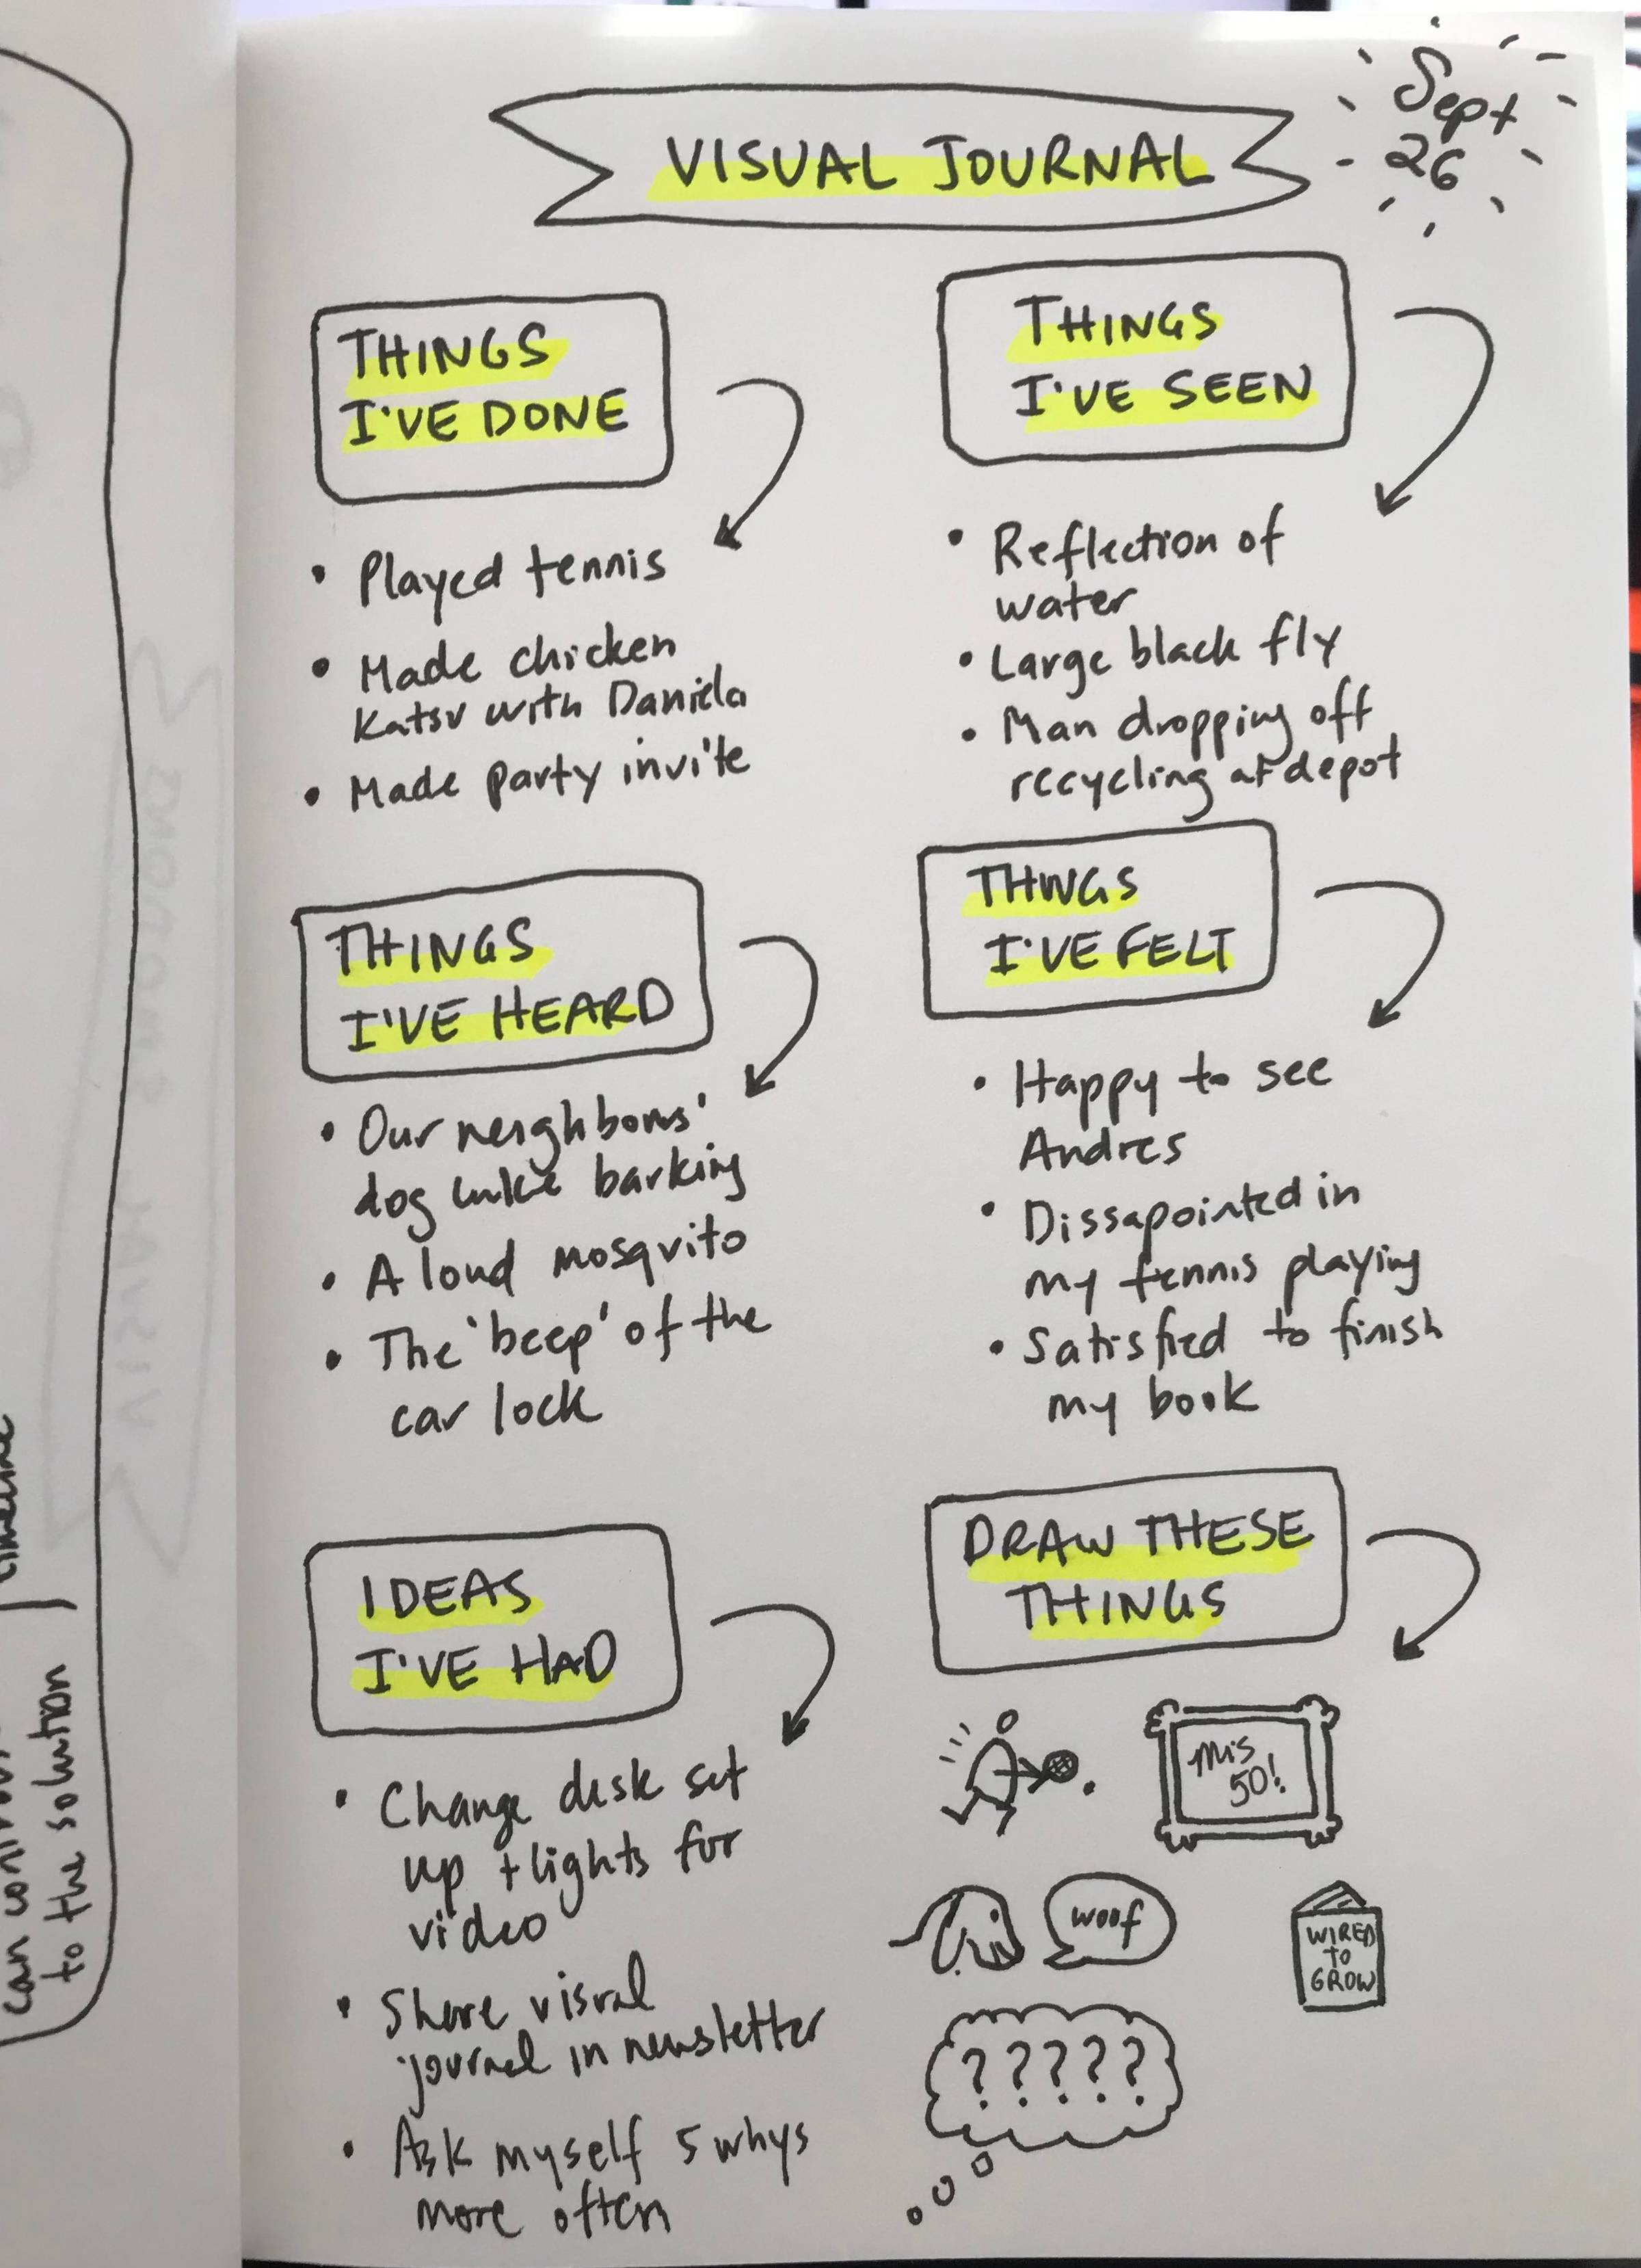 VISUAL JOURNAL
Sept
26
THINGS
I'VE DONE
• Played tennis
• Made chicken
Katsu with Daniela
• Made party invite
THINGS
I'VE SEEN
• Reflection of
water
• Large black fly
• Man dropping off
recycling at depot
THINGS
I'VE HEARD
• Our neighbours'
dog Luke barking
• A loud mosquito
• The 'beep' of the
car lock
THINGS
I'VE FELT
• Happy to see
Andres
• Dissapointed in
my tennis playing
• Satisfied to finish
my book
IDEAS
I'VE HAD
• Change desk set
up + lights for
video
• Share visual
journal in newsletter
• Ask myself 5 whys
more often
DRAW THESE
THINGS
Mis
50!
woof
WIRED
TO
GROW
?????
timeline
can
to the solution